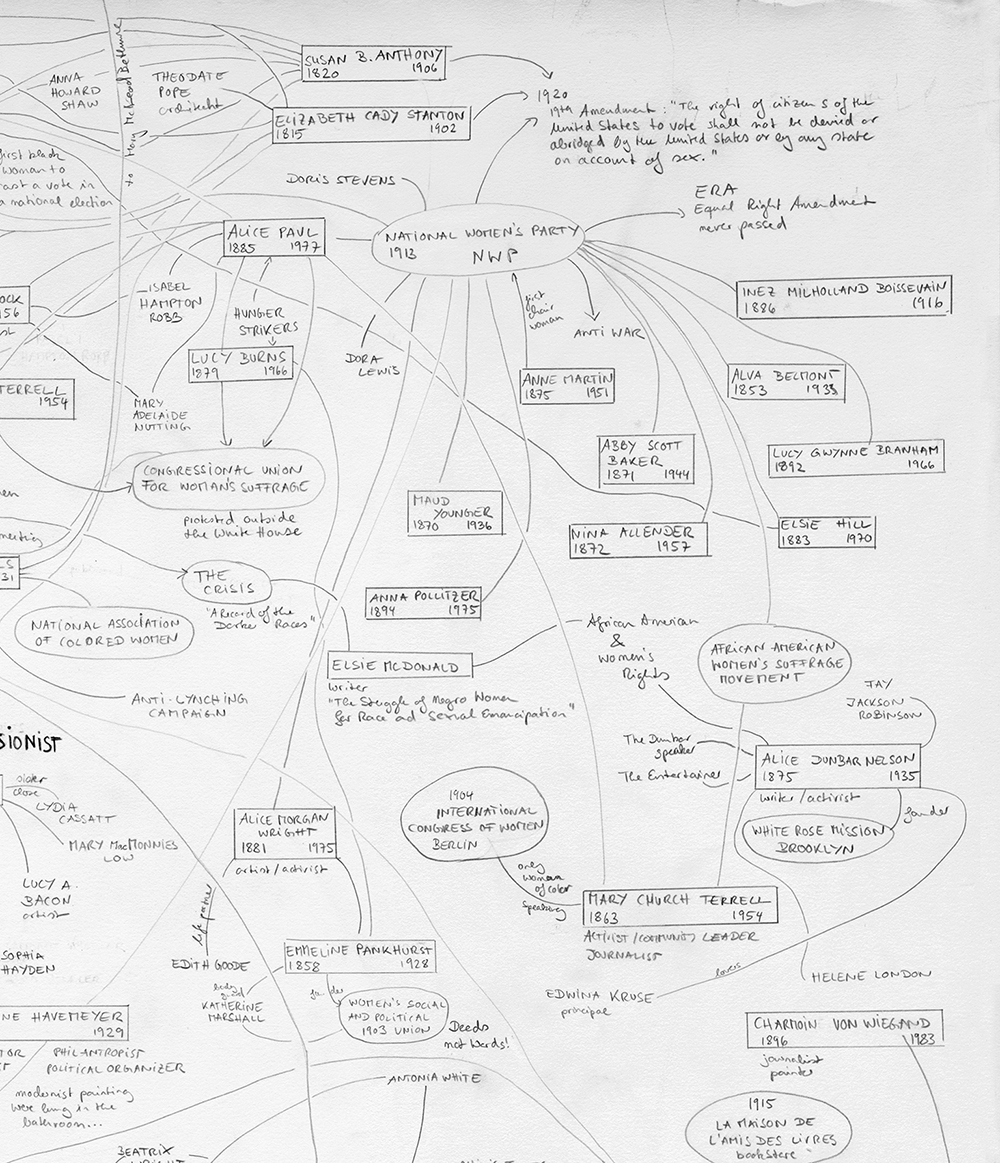 to Mary McLeod Bethune
SUSAN B. ANTHONY
1820 1906
ANNA
HOWARD
SHAW
THEODATE
POPE
ELIZABETH CADY STANTON
1815 1902
1920
19th Amendment: "The right of citizens of the
United States to vote shall not be denied or
abridged by the United States or by any state
on account of sex."
first black
woman to
cast a vote in
a national election
DORIS STEVENS
ERA
Equal Right Amendment
never passed
ALICE PAUL
1885 1977
NATIONAL WOMEN'S PARTY
1913 NWP
ISABEL
HAMPTON
ROBB
HUNGER
STRIKERS
first
chair
woman
ANTI WAR
INEZ MILHOLLAND BOISSEVAIN
1886 1916
OCK
56
LUCY BURNS
1879 1966
DORA
LEWIS
ANNE MARTIN
1875 1951
ALVA BELMONT
1853 1933
TERRELL
1954
MARY
ADELAIDE
NUTTING
ABBY SCOTT
BAKER
1871 1944
LUCY GWYNNE BRANHAM
1892 1966
CONGRESSIONAL UNION
FOR WOMAN'S SUFFRAGE
protested outside
the White House
MAUD
YOUNGER
1870 1936
NINA ALLENDER
1872 1957
ELSIE HILL
1883 1970
men
meeting
LS
31
THE
CRISIS
"A Record of the
Darker Races"
ANNA POLLITZER
1894 1975
NATIONAL ASSOCIATION
OF COLORED WOMEN
African American
&
Women's
Rights
AFRICAN AMERICAN
WOMEN'S SUFFRAGE
MOVEMENT
ELSIE MCDONALD
writer
"The Struggle of Negro Women
for Race ad Sexual Emancipation"
ANTI-LYNCHING
CAMPAIGN
JAY
JACKSON
ROBINSON
SIONIST
The Dunbar
speaker
The Entertainer
ALICE DUNBAR NELSON
1875 1935
writer/activist
founder
WHITE ROSE MISSION
BROOKLYN
sister
close
LYDIA
CASSATT
MARY MACMONNIES
LOW
LUCY A.
BACON
artist
SOPHIA
HAYDEN
ALICE MORGAN
WRIGHT
1881 1975
artist/activist
1904
INTERNATIONAL
CONGRESS OF WOMEN
BERLIN
only
woman
of color
speaking
MARY CHURCH TERRELL
1863 1954
ACTIVIST/COMMUNITY LEADER
JOURNALIST
life partner
EDITH GOODE
EMMELINE PANKHURST
1858 1928
body
guard
KATHERINE
MARSHALL
founder
WOMEN'S SOCIAL
AND POLITICAL
1903 UNION
Deeds
not Words!
lovers
EDWINA KRUSE
principal
HELENE LONDON
NE HAVEMEYER
1929
PHILANTROPIST
POLITICAL ORGANIZER
modernist painting
were hung in the
bathroom...
CHARMOIN VON WIEGAND
1896 1983
journalist
painter
ANTONIA WHITE
1915
LA MAISON DE
L'AMIS DES LIVRES
bookstore
BEATRIX